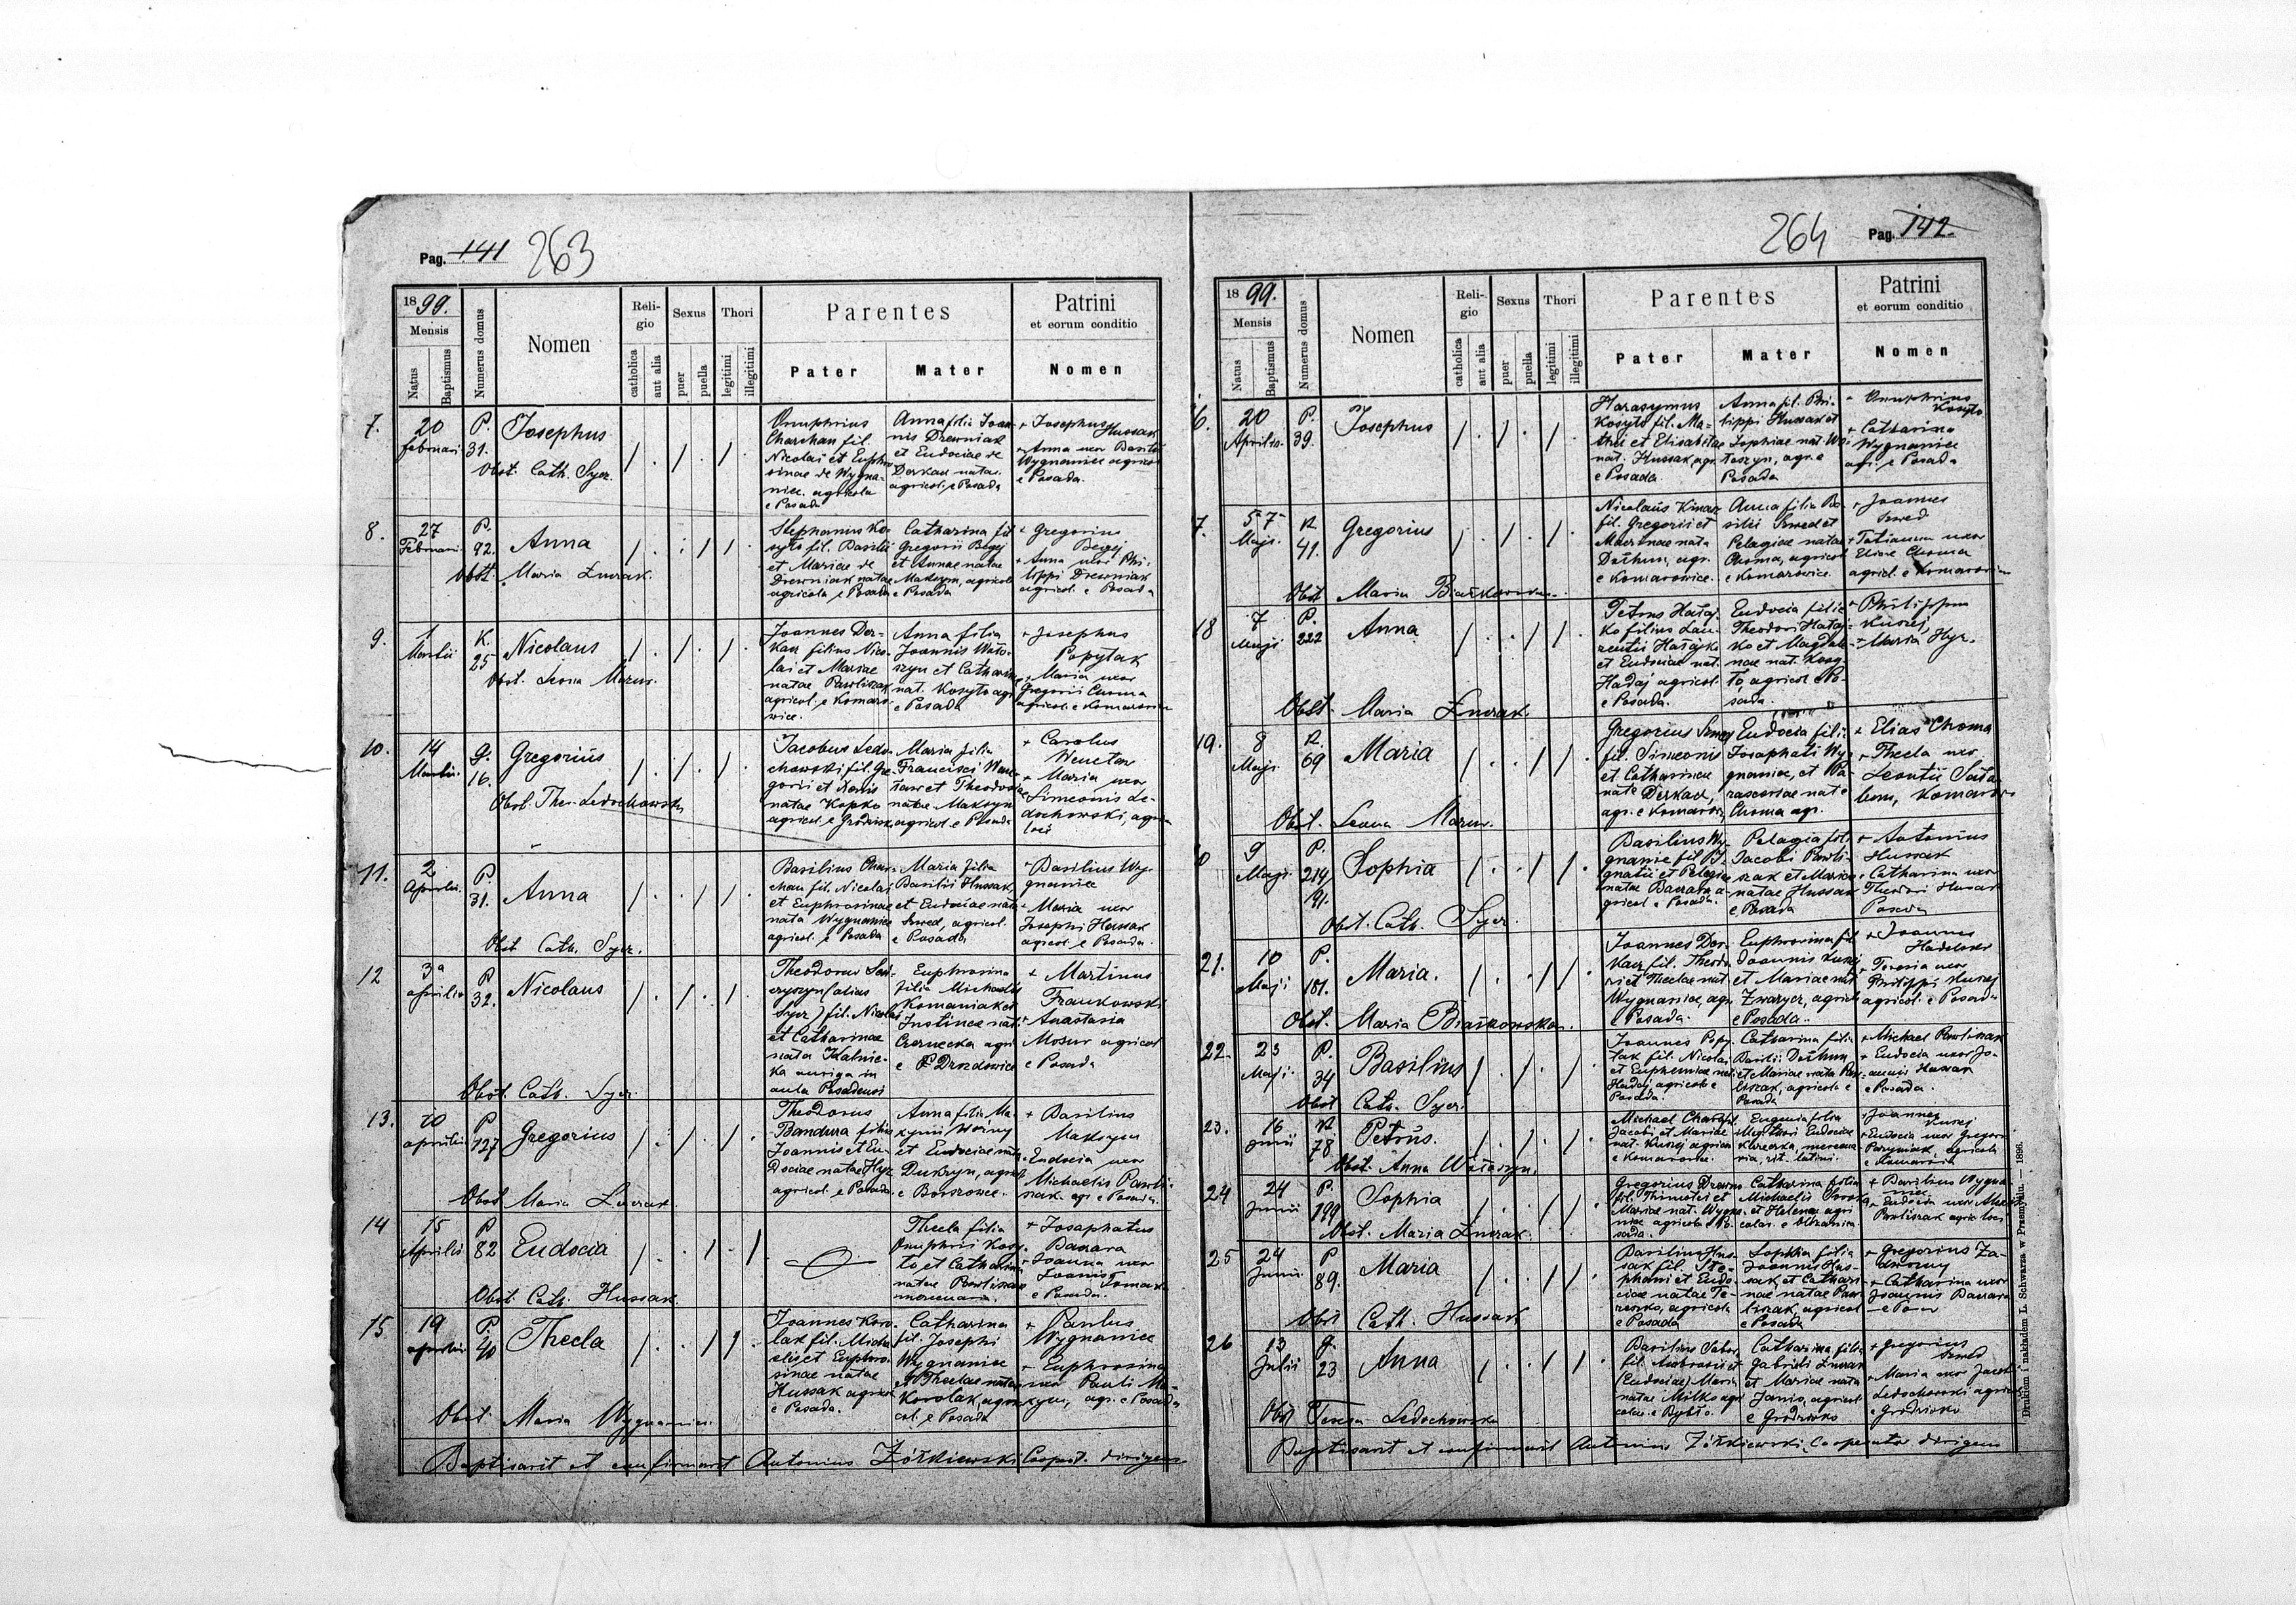 Pag. 141 263
1899.
Mensis
Natus
Baptismus
Numerus domus
Nomen
Religio
catholica
aut alia
Sexus
puer
puella
Thori
legitimi
illegitimi
Parentes
Pater
Mater
Patrini
et eorum conditio
Nomen
7. 20 Februari P. 31. Josephus
Obst. Cath. Sycz.
Onuphrius
Charchan fil.
Nicolai et Euphro
sinae de Wygna-
nice. agricola
e Posada
Anna filia Joan-
nis Drewniak
et Eudociae de
Derkacz natae.
agricol. e Posada
+ Josephus Hussak
+ Anna uxor Basilii
Wygnanice agricol
e Posada.
8. 27 Februari P. 92. Anna
Obst. Maria Żurak.
Stephanus Ko-
syło fil. Basilii
et Mariae de
Drewniak natae
agricola e Posada
Catharina fil
Gregorii Begej
et Annae natae
Maksym, agricol
e Posada
+ Gregorius
Begej
+ Anna uxor Phi-
lippi Drewniak
agricol. e Posada
9. 1 Martii K. 25 Nicolaus
Obst. Leona Mazur.
Joannes Der-
kacz filius Nico-
lai et Mariae
natae Pawliszak
agricol. e Komaro-
wice.
Anna filia
Joannis Wało-
szyn et Catharinae
nat. Kosyło agr
e Posada
+ Josephus
Popytak
+ Maria uxor
Gregorii Choma
agricol. e Komarowice
10. 14 Martii. G. 16. Gregorius
Obst. Ther. Ledochowska
Jacobus Ledo-
chowski fil. Gre-
gorii et
natae Kopko
agricol. e Grodzisko
Maria filia
Francisci Wene-
taw et Theodosiae
natae Maksym
agricol. e Posada
+ Carolus
Wenetaw
+ Maria uxor
Simeonis Le-
dochowski, agri
loci
11. 2 Aprilis. P. 31. Anna
Obst. Cath. Sycz.
Basilius Char-
chan fil. Nicolai
et Euphrosinae
nata Wygnanice
agricol. e Posada
Maria filia
Basilii Hussak,
et Eudociae nata
Szwed, agricol.
e Posada
+ Basilius Wy-
gnanice
+ Maria uxor
Josephi Hussak
agricol e Posada.
12 3ª aprilis P 32. Nicolaus
Obst. Cath. Sycz.
Theodorus
(alias
Sycz) fil. Nicolai
et Catharinae
nata Kalnic-
ka auriga in
aula Posadensi
Euphrosina
filia Michaelis
Romaniak et
Justinae nat.
Czernecka agri
e P Drozdowice
+ Martinus
Frankowski
+ Anastasia
Mosur agricol
e Posada
13. 10 aprilis P 127 Gregorius
Obst Maria Żurak.
Theodorus
Bandura filius
Joannis et Eu-
dociae natae Hyz
agricol. e Posada
Anna filia Ma-
xymi Woźny
et Eudociae nata
Dukszyn, agricol
e Boszowce.
+ Basilius
Maksym
+ Eudocia uxor
Michaelis Pawli-
szak agr. e Posada.
14 15 Aprilis P 82 Eudocia
Obst. Cath. Hussak.
Thecla filia
Onuphrii Kosy-
ło et Catharina
natae Pawliszak
mercenaria.
+ Josaphatus
Baczara
+ Joanna uxor
Joannis
e Posada.
15 19 aprilis P. 40 Thecla
Obst. Maria Wygnanice.
Joannes Koro-
lak fil. Micha-
elis et Euphro-
sinae natae
Hussak agricol
e Posada.
Catharina
fil. Josephi
Wygnanice
et Theclae natae
Korolak, agri-
col. e Posada
+ Paulus
Wygnanice
+ Euphrosina
uxor Pauli Ma-
ksym, agr. e Posada
Baptisavit et confirmavit Antonius Żółkiewski Coopert. dirigens
264 Pag. 142.
1899.
Mensis
Natus
Baptismus
Numerus domus
Nomen
Religio
catholica
aut alia
Sexus
puer
puella
Thori
legitimi
illegitimi
Parentes
Pater
Mater
Patrini
et eorum conditio
Nomen
6. 20 Aprilis. P. 39. Josephus
Harasymus
Kosyło fil. Ma-
thei et Elisabetae
nat. Hussak, agr.
e Posada.
Anna fil. Phi-
lippi Hussak et
Sophiae nat. Wo-
łoszyn, agr. e
Posada
+ Onuphrius
Kosyło
+ Catharina
Wygnanice
agr. e Posada
7. 5 7 Maji. K. 41. Gregorius
Obst Maria Białkowska.
Nicolaus
fil. Gregorii et
Macrinae nata
Dołhun, agr.
e Komarowice.
Anna filia Ba-
silii Szwed et
Pelagiae natae
Choma, agricol
e Komarowice.
+ Joannes
Szwed
+ Tatianna uxor
Eliae Choma
agricol. e Komarowice
18 7 Maji P. 222 Anna
Obst. Maria Żurak.
Petrus Hałaj-
ko filius Lau-
rentii Hałajko
et Eudociae nat.
Hadaj agricol.
e Posada.
Eudocia filia
Theodori Hałaj-
ko et Magdale-
nae nat. Kosy-
ło, agricol e Po-
sada.
+ Philippus
Kusej,
+ Maria Hyz.
19. 8 Maji K. 69 Maria
Obst. Leona Mazur.
Gregorius Szwed
fil. Simeonis
et Catharinae
natae Derkacz,
agr. e Komarow.
Eudocia fili-
Josaphati Wy-
gnanice, et Pa-
rasceviae natae
Choma agr.
+ Elias Choma
+ Thecla uxor
Leontii
Komarow-
9 Maji. P. 214/191. Sophia
Obst. Cath. Sycz.
Basilius Wy-
gnanic fil
gnatii et Pelagiae
natae Baczara a-
gricol e Posada.
Pelagia fil.
Jacobi Pawli-
szak et Mariae
natae Hussak
e Posada
+ Antonius
Hussak
+ Catharina uxor
Theodori Hussak
Posada
21. 10 Maji P. 181. Maria.
Obst. Maria Białkowska.
Joannes Der-
kacz fil. Theodo
ri et Theclae nat
Wygnanice, agr.
e Posada.
Euphrosina fil
Joannis Kusej
et Mariae nat
Zwarycz, agricol
e Posada.
+ Joannes
+ Teresia uxor
Philippi Kusej
agricol. e Posada
22. 23 Maji. P. 34 Basilius
Obst Cath. Sycz.
Joannes Popy-
tak fil. Nicolai
et Euphemiae nat
Hadaj, agricola e
Posada.
Catharina filia
Basilii Dołhun
et Mariae nata Paw-
liszak, agricola e
Posada
+ Michael Pawliszak
+ Eudocia uxor Jo-
annis Hussak
e Posada.
23. 16 Junii K 78 Petrus.
Obst. Anna Wołoszyn.
Michael
Jacobi et Mariae
nat. Kusej agricol
e Komarowice.
Eugenia filia
Eudociae
mercena
ria, rit. latini.
+ Joannes
Kusej
+ Eudocia uxor Gregorii
agricola
e Komarowice
24 24 Junii P. 199 Sophia
Obst. Maria Żurak.
Gregorius Drewn
fil. Thimotei et
Mariae nat. Wygna-
nice agricola e Po-
sada.
Catharina filia
Michaelis
et Helenae agri
colar.
+ Basilius Wygna-
nice
+ Eudocia uxor
Pawliszak agric loci
25 24 Junii P 89. Maria
Obst Cath. Hussak
Basilius Hus-
sak fil. Ste-
phani et Eudo-
ciae natae Te-
reszko, agricola
e Posada
Sophia filia
Joannis Hus-
sak et Cathari-
nae natae Paw-
liszak, agricol
e Posada
+ Gregorius Za-
dworny
+ Catharina uxor
Joannis Baczara
e Posa
26 13 Julii G. 23 Anna
Obst Teresa Ledochowska
Basilius
fil. Ambrosii et
(Eudociae) Maria
natae Milko agri
colae e Rybło.
Catharina filia
Gabrieli Żurak
et Mariae nata
Janis, agricol
e Grodzisko
+ Gregorius
Szwed
+ Maria uxor Jacobi
Ledochowski agricol
e Grodzisko
Baptisavit et confirmavit Antonius Żółkiewski Cooperator dirigens
Drukiem i nakładem L. Schwarza w Przemyślu. — 1896.